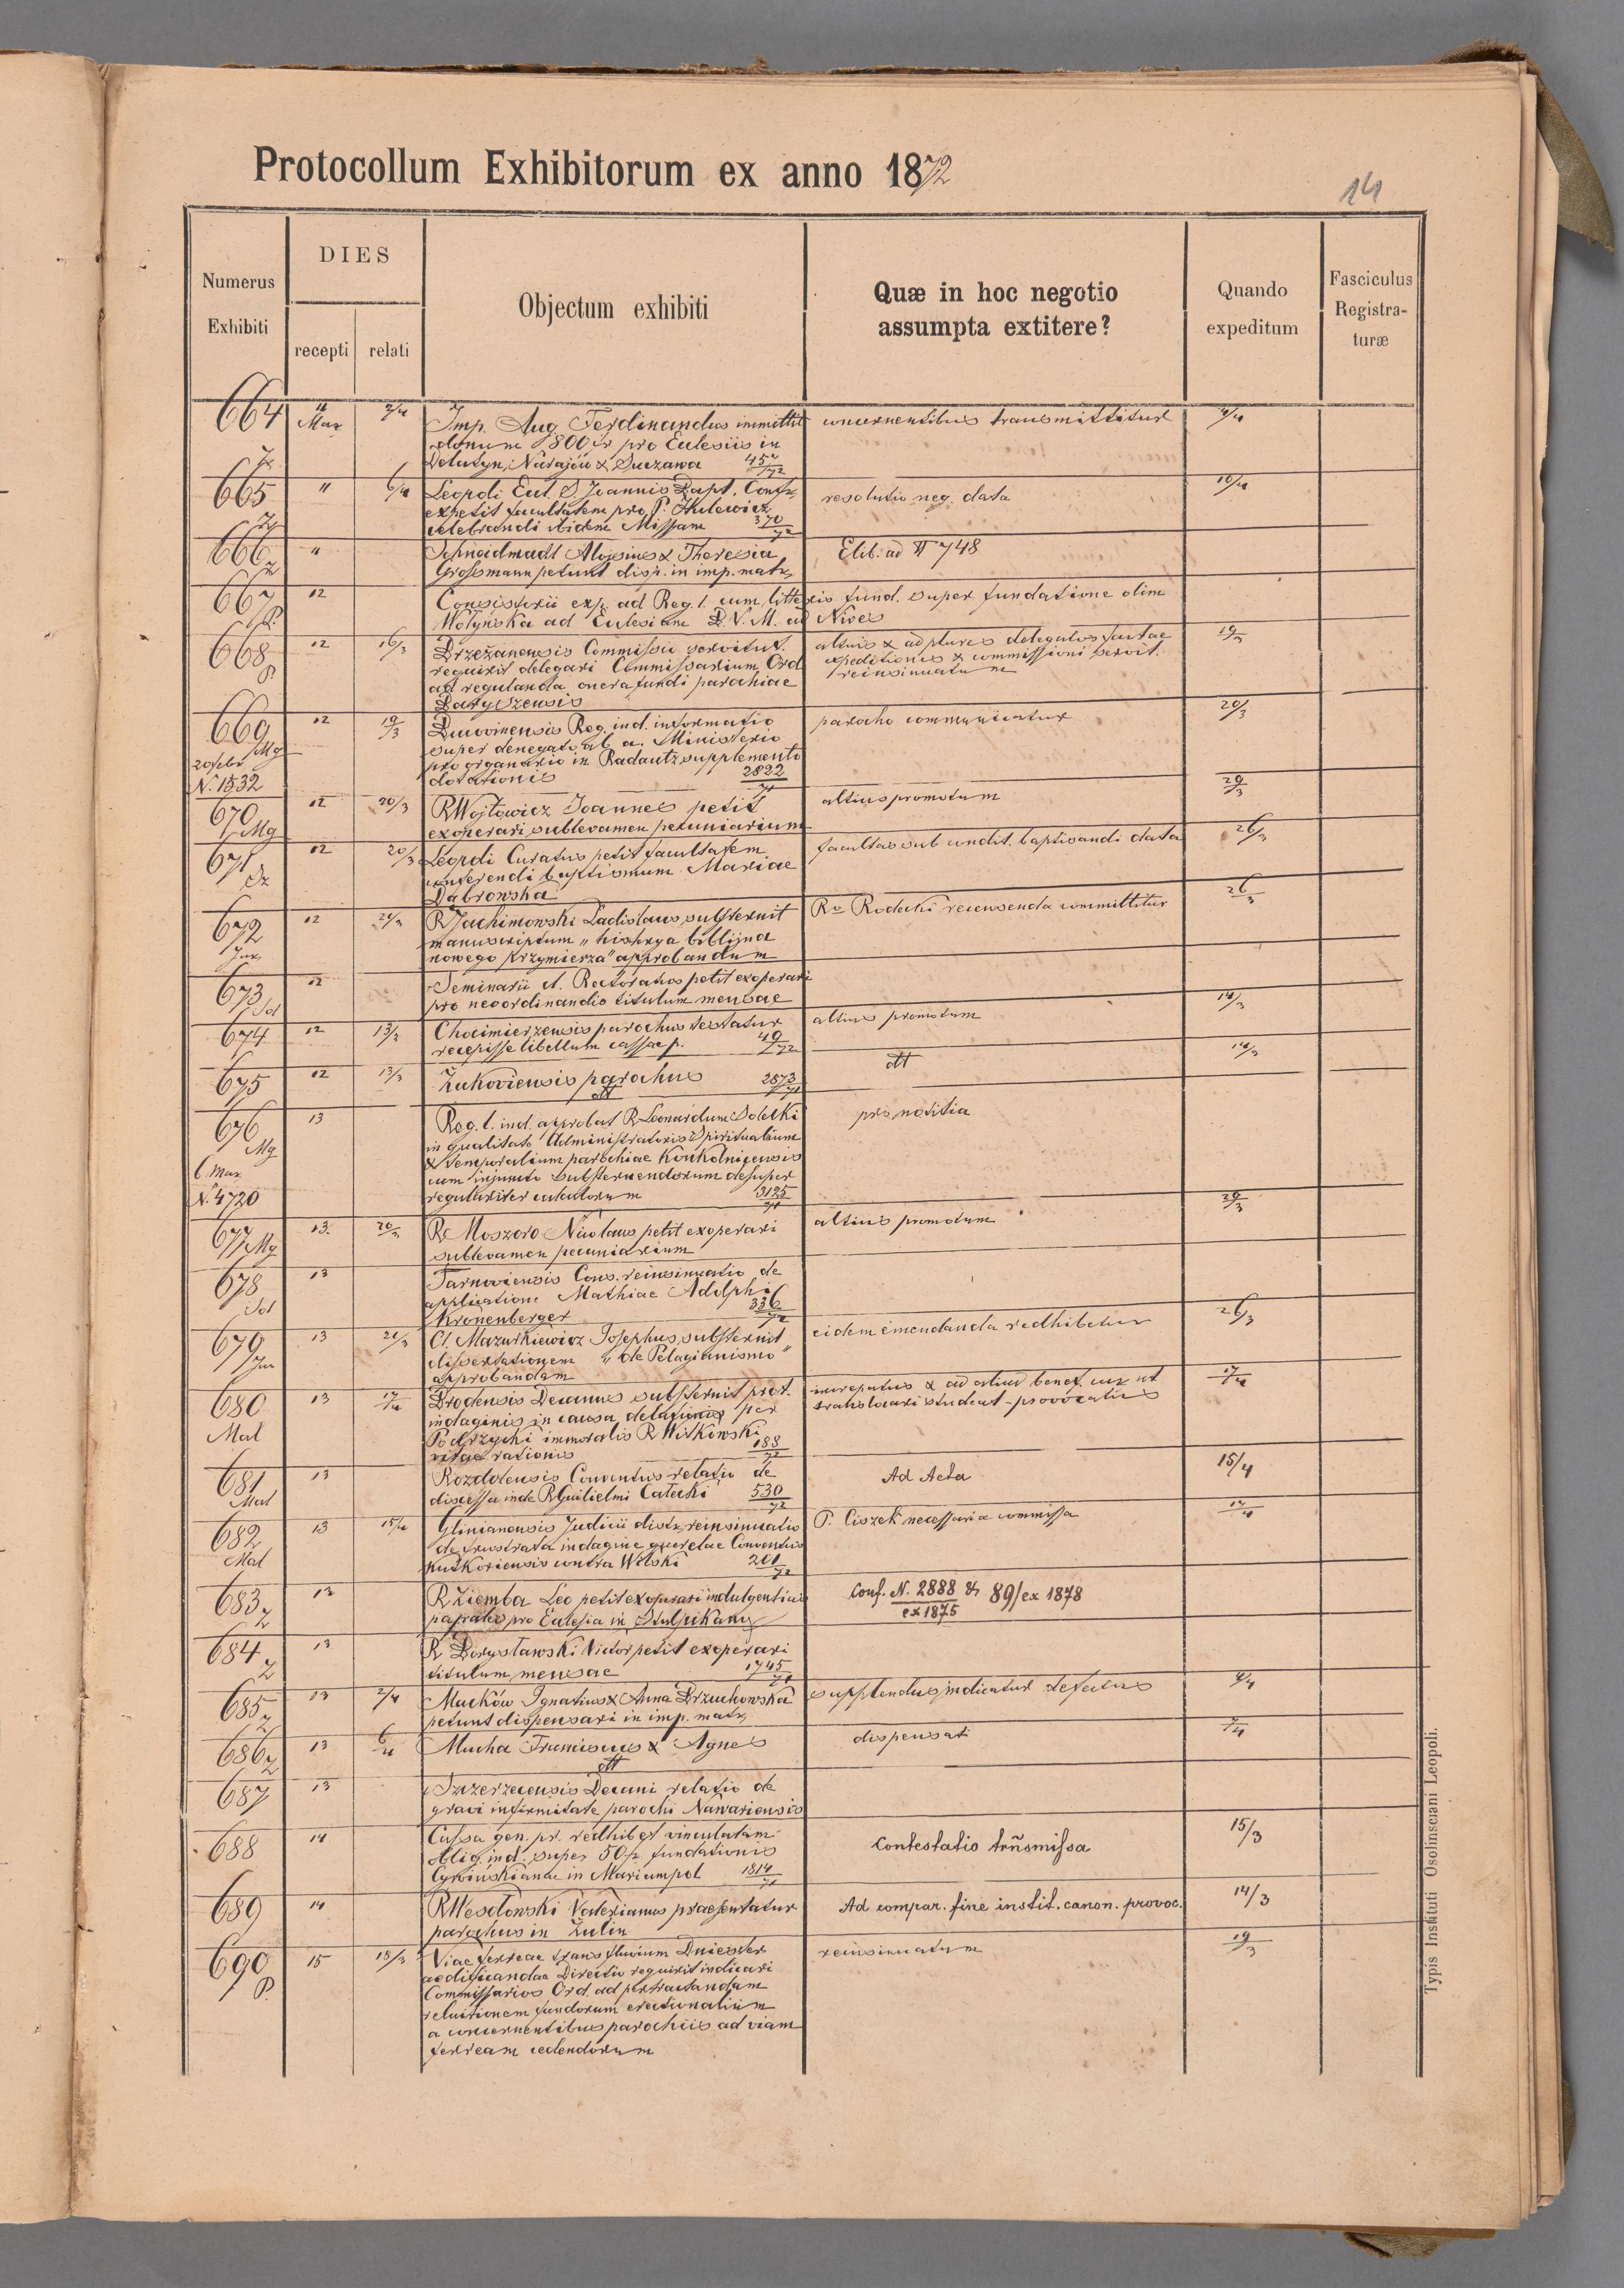 Protocollum Exhibitorum ex anno 1872
14
Numerus Exhibiti
DIES
recepti
relati
Objectum exhibiti
Quæ in hoc negotio assumpta extitere?
Quando expeditum
Fasciculus Registraturæ
664
Mar
Imp. Aug. Ferdinandus immittit
donum 800 fr pro Eclesiis in
Delatyn, Narajów & Suczawa
concernentibus transmittitur
665
"
6/4
Leopoli Eccl. S. Joannis Bapt. Confr.
expetit facultatem pro P.
celebrandi ibidem Missam 370/72
resolutio neg. data
10/4
666
"
Aloysius & Theresia
Grossmann petunt disp. in imp. matr.
Elib. ad # 748
667
12
Consistorii exp. ad Reg. l. cum litteris fund. super fundatione olim
Wołyńska ad Eclesiam B.V.M. ad Nives
668
P
12
16/3
Brzeżanensis Commissio servitut.
requirit delegari Commissarium Ord
ad regulanda onera fundi parochiae
altius & ad plures delegatos factae
expeditiones & commissioni servit.
reinsinuatum
19/3
669
Mg
20 febr
N. 1532
12
19/3
Bucovinensis Reg. ind. informatio
super denegato ab a. Ministerio
pro organario in Radautz supplemento
dotationis 2822/71
parocho communicatur
20/3
670
Mg
12
20/3
R Wojtowicz Joannes petit
exoperari sublevamen pecuniarium
altius promotum
29/3
671
12
20/3
Leopoli Curatus petit facultatem
conferendi baptismum Mariae
Dąbrowska
facultas sub condit. baptisandi data
26/3
672
Jur
12
21/3
R Jachimowski Ladislaus substernit
manuscriptum „historya biblijna
nowego przymierza" approbandum
Ro Rodecki recensenda committitur
26/3
673
Sol
12
Seminarii cl. Rectoratus petit exoperari
pro neoordinandis titulum mensae
674
12
13/3
Chocimierzensis parochus testatur
recepisse libellum cassae p. 49/72
altius promotum
14/3
675
12
13/3
Żukoviensis parochus 2873/71
dtt
dtt
14/3
676
Mg
6 Mar
N. 4720
13
Reg. l. ind. approbat R Leonardum Solecki
in qualitate Administratoris Spiritualium
& Temporalium parochiae Konkolnicensis
cum injuncto substernendorum desuper
regulariter calculorum 3125/71
pro notitia
677
Mg
13.
20/3
R. Moszoro Nicolaus petit exoperari
sublevamen pecuniarium
altius promotum
29/3
678
Sol
13
Tarnoviensis Cons. reinsinuatio de
applicatione Mathiae Adolphi
Kronenberger 336/72
679
Jur
13
21/3
Cl. Mazurkiewicz Josephus substernit
dissertationem „de Pelagianismo"
approbandam
eidem emendanda redhibetur
26/3
680
Mal
13
17/4
Brodensis Decanus substernit prot.
indaginis in causa delationis per
Podrzycki immoralis R Witkowski
vitae rationis 188/72
increpatus & ad aliud benef. cur. ut
translocari studeat - provocatus
17/4
681
Mal
13
Rozdolensis Conventus relatio de
discessu inde R Guilielmi Całecki 530/72
Ad Acta
15/4
682
Mal
13
15/4
Glinianensis Judicii distr. reinsinuatio
de frustrata indagine querelae Conventus
Kutkoriensis contra Wilski 201/72
P. Ciszek necessaria commissa
17/4
683
R Ziemba Leo petit exoperari indulgentias
papales pro Eclesia in Stulpikany
Conf. N. 2888 ex 1875 & 89/ex 1878
684
13
R Borysławski Victor petit exoperari
titulum mensae 1745/71
685
13
2/4
Maćków Ignatius & Anna Brzuchowska
petunt dispensari in imp. matr.
supplendus indicatur defectus
4/4
686
13
6/4
Mucha Franciscus & Agnes
dtt
dispensati
7/4
687
13
Szczerzecensis Decani relatio de
gravi infirmitate parochi Nawariensis
688
14
Cassa gen. pr. redhibet vinculatam
oblig. ind. super 50 fr fundationis
in Mariampol 1814/71
Contestatio trñsmissa
15/3
689
14
R Wesołowski Valerianus praesentatur
parochus in Żulin
Ad compar. fine instit. canon. provoc.
14/3
690
P.
15
18/3
Viae ferreae trans fluvium Dniester
aedificandae Directio requirit indicari
Commissarios Ord. ad pertractandam
reluitionem fundorum erectionalium
a concernentibus parochiis ad viam
ferream cedendorum
reinsinuatum
19/3
Typis Instituti Osolinsciani Leopoli.